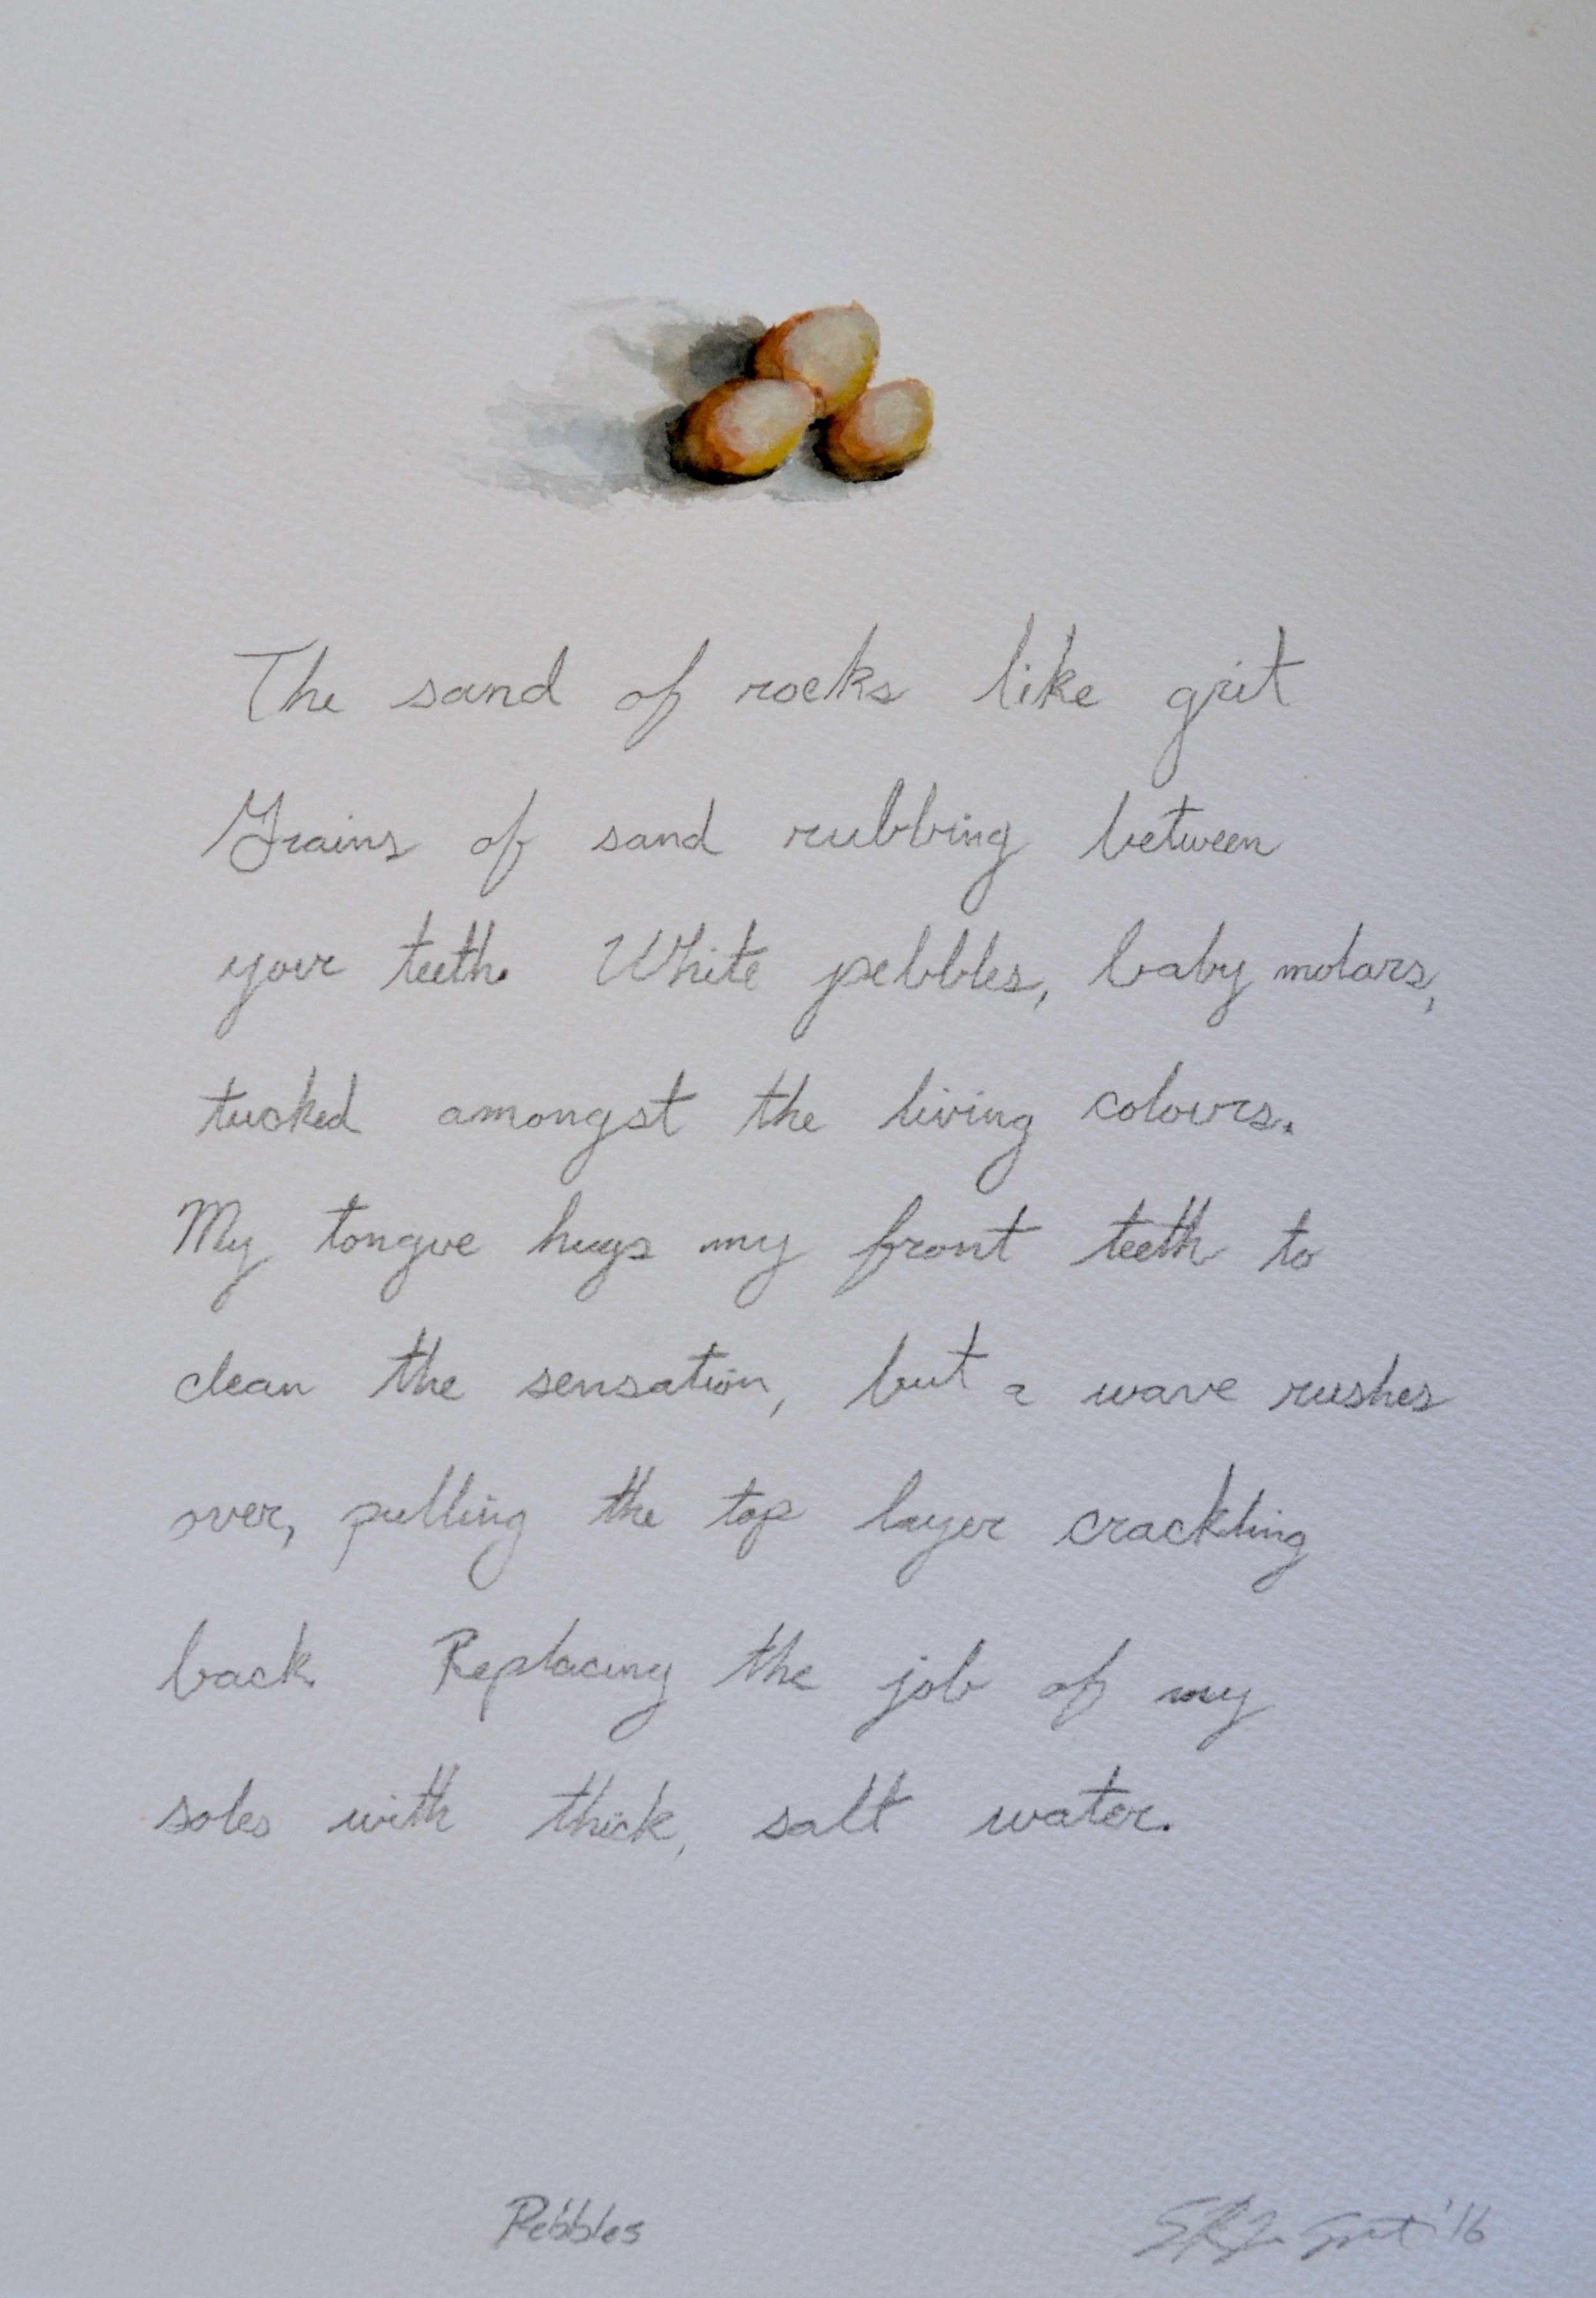 The sand of rocks like grit
Grains of sand rubbing between
your teeth. White pebbles, baby molars,
tucked amongst the living colours.
My tongue hugs my front teeth to
clean the sensation, but a wave rushes
over, pulling the top layer crackling
back Replacing the job of my
soles with thick, salt water.
Pebbles
'16